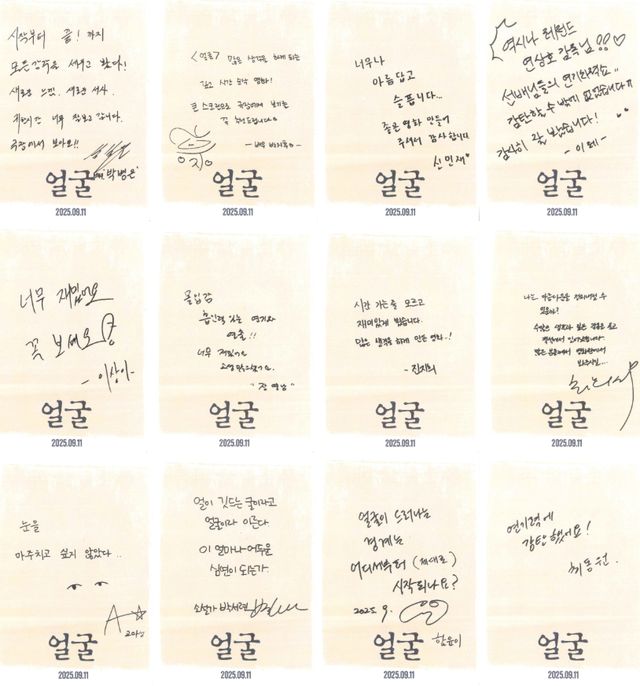 시작부터 끝! 까지
모든감각을 세우고 봤다!
새로운 느낌. 새로운 서사.
극장에서 보아요!!
박병은
얼굴
2025.09.11
<얼굴> 많은 생각을 하게 되는
깊고 시간 순삭 영화!
큰 스크린으로 극장에서 보기를
꼭 추천드립니다
얼굴
2025.09.11
너무나
아름답고
슬픕니다...
좋은 영화 만들어
주셔서 감사합니다
신민재
얼굴
2025.09.11
역시나 레전드
연상호 감독님!!♡
선배님들의 연기회력쇼..
감탄할 수 밖에 없었습니다ㅠ
감사히 잘 봤습니다!
- 이레 -
얼굴
2025.09.11
너무 재밌어요
꼭 보세요
- 이상이 -
얼굴
2025.09.11
몰입감
흡인력 있는 연기와
연출!!
너무 재밌어요
"장영남"
얼굴
2025.09.11
시간 가는줄 모르고
재미있게 봤습니다.
많은 생각을 하게 만든 영화..!
- 진지희
얼굴
2025.09.11
나는 아름다움을
얼굴
2025.09.11
눈을
마주치고 싶지 않았다..
고아성
얼굴
2025.09.11
얼이 깃드는 굴이라고
얼굴이라 이른다
이 얼마나 어두운
심연이 되는가.
소설가 박서련
얼굴
2025.09.11
얼굴이 드러나는
경계는
어디서부터 (제대로)
시작되나요?
2025. 9.
함윤이
얼굴
2025.09.11
연기력에
감탄했어요!
최동원.
얼굴
2025.09.11